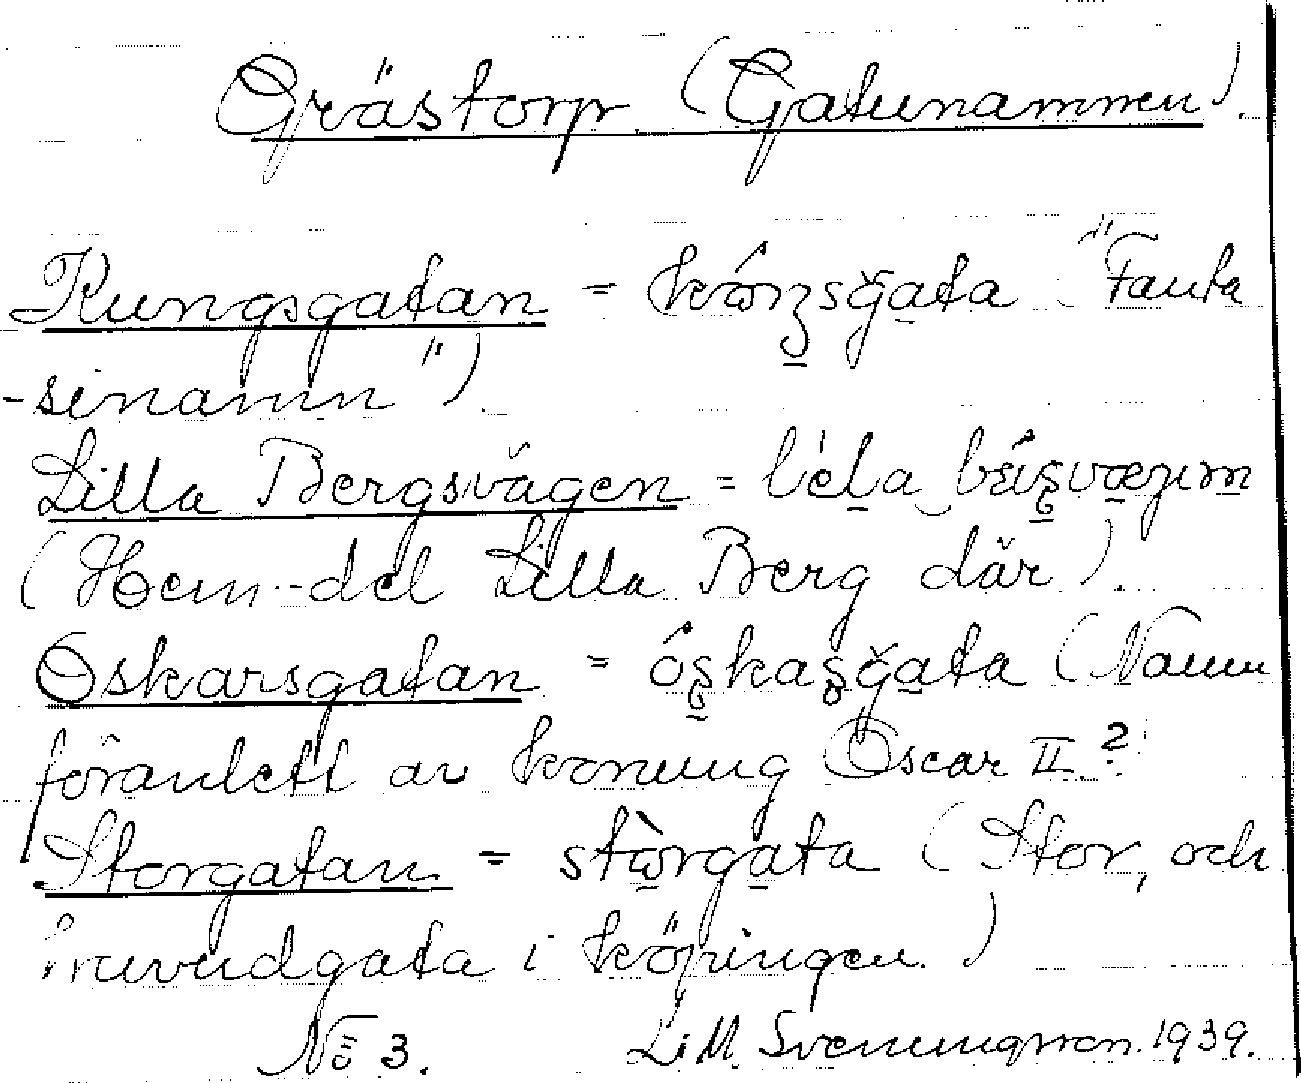 Grästorp (Gatunamnen).
Kungsgatan = kóŋsǧata "Fanta
-sinamn")
Lilla Bergsvägen = léla
(Hem.-del Lilla Berg där).
Oskarsgatan = (Namn
föranlett av konung Oscar II?
Storgatan = stòrgata (Stor, och
huvudgata i köpingen.)
No 3. Svenungsson. 1939.